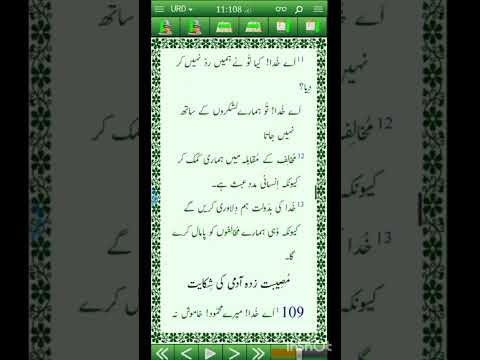 URD
زبور 11:108
11 اَے خُدا! کیا تُو نے ہمیں ردّ نہیں کر
دِیا؟
اَے خُدا! تُو ہمارے لشکروں کے ساتھ
نہیں جاتا
12 مُخالِف کے مُقابلہ میں ہماری کُمک کر
کیونکہ اِنسانی مدد عبث ہے۔
13 خُدا کی بدَولت ہم دِلاوری کریں گے
کیونکہ وُہی ہمارے مُخالِفوں کو پامال کرے
گا۔
مُصِیبت زدہ آدمی کی شِکایت
109 1 اَے خُدا! میرے محمُود! خاموش نہ